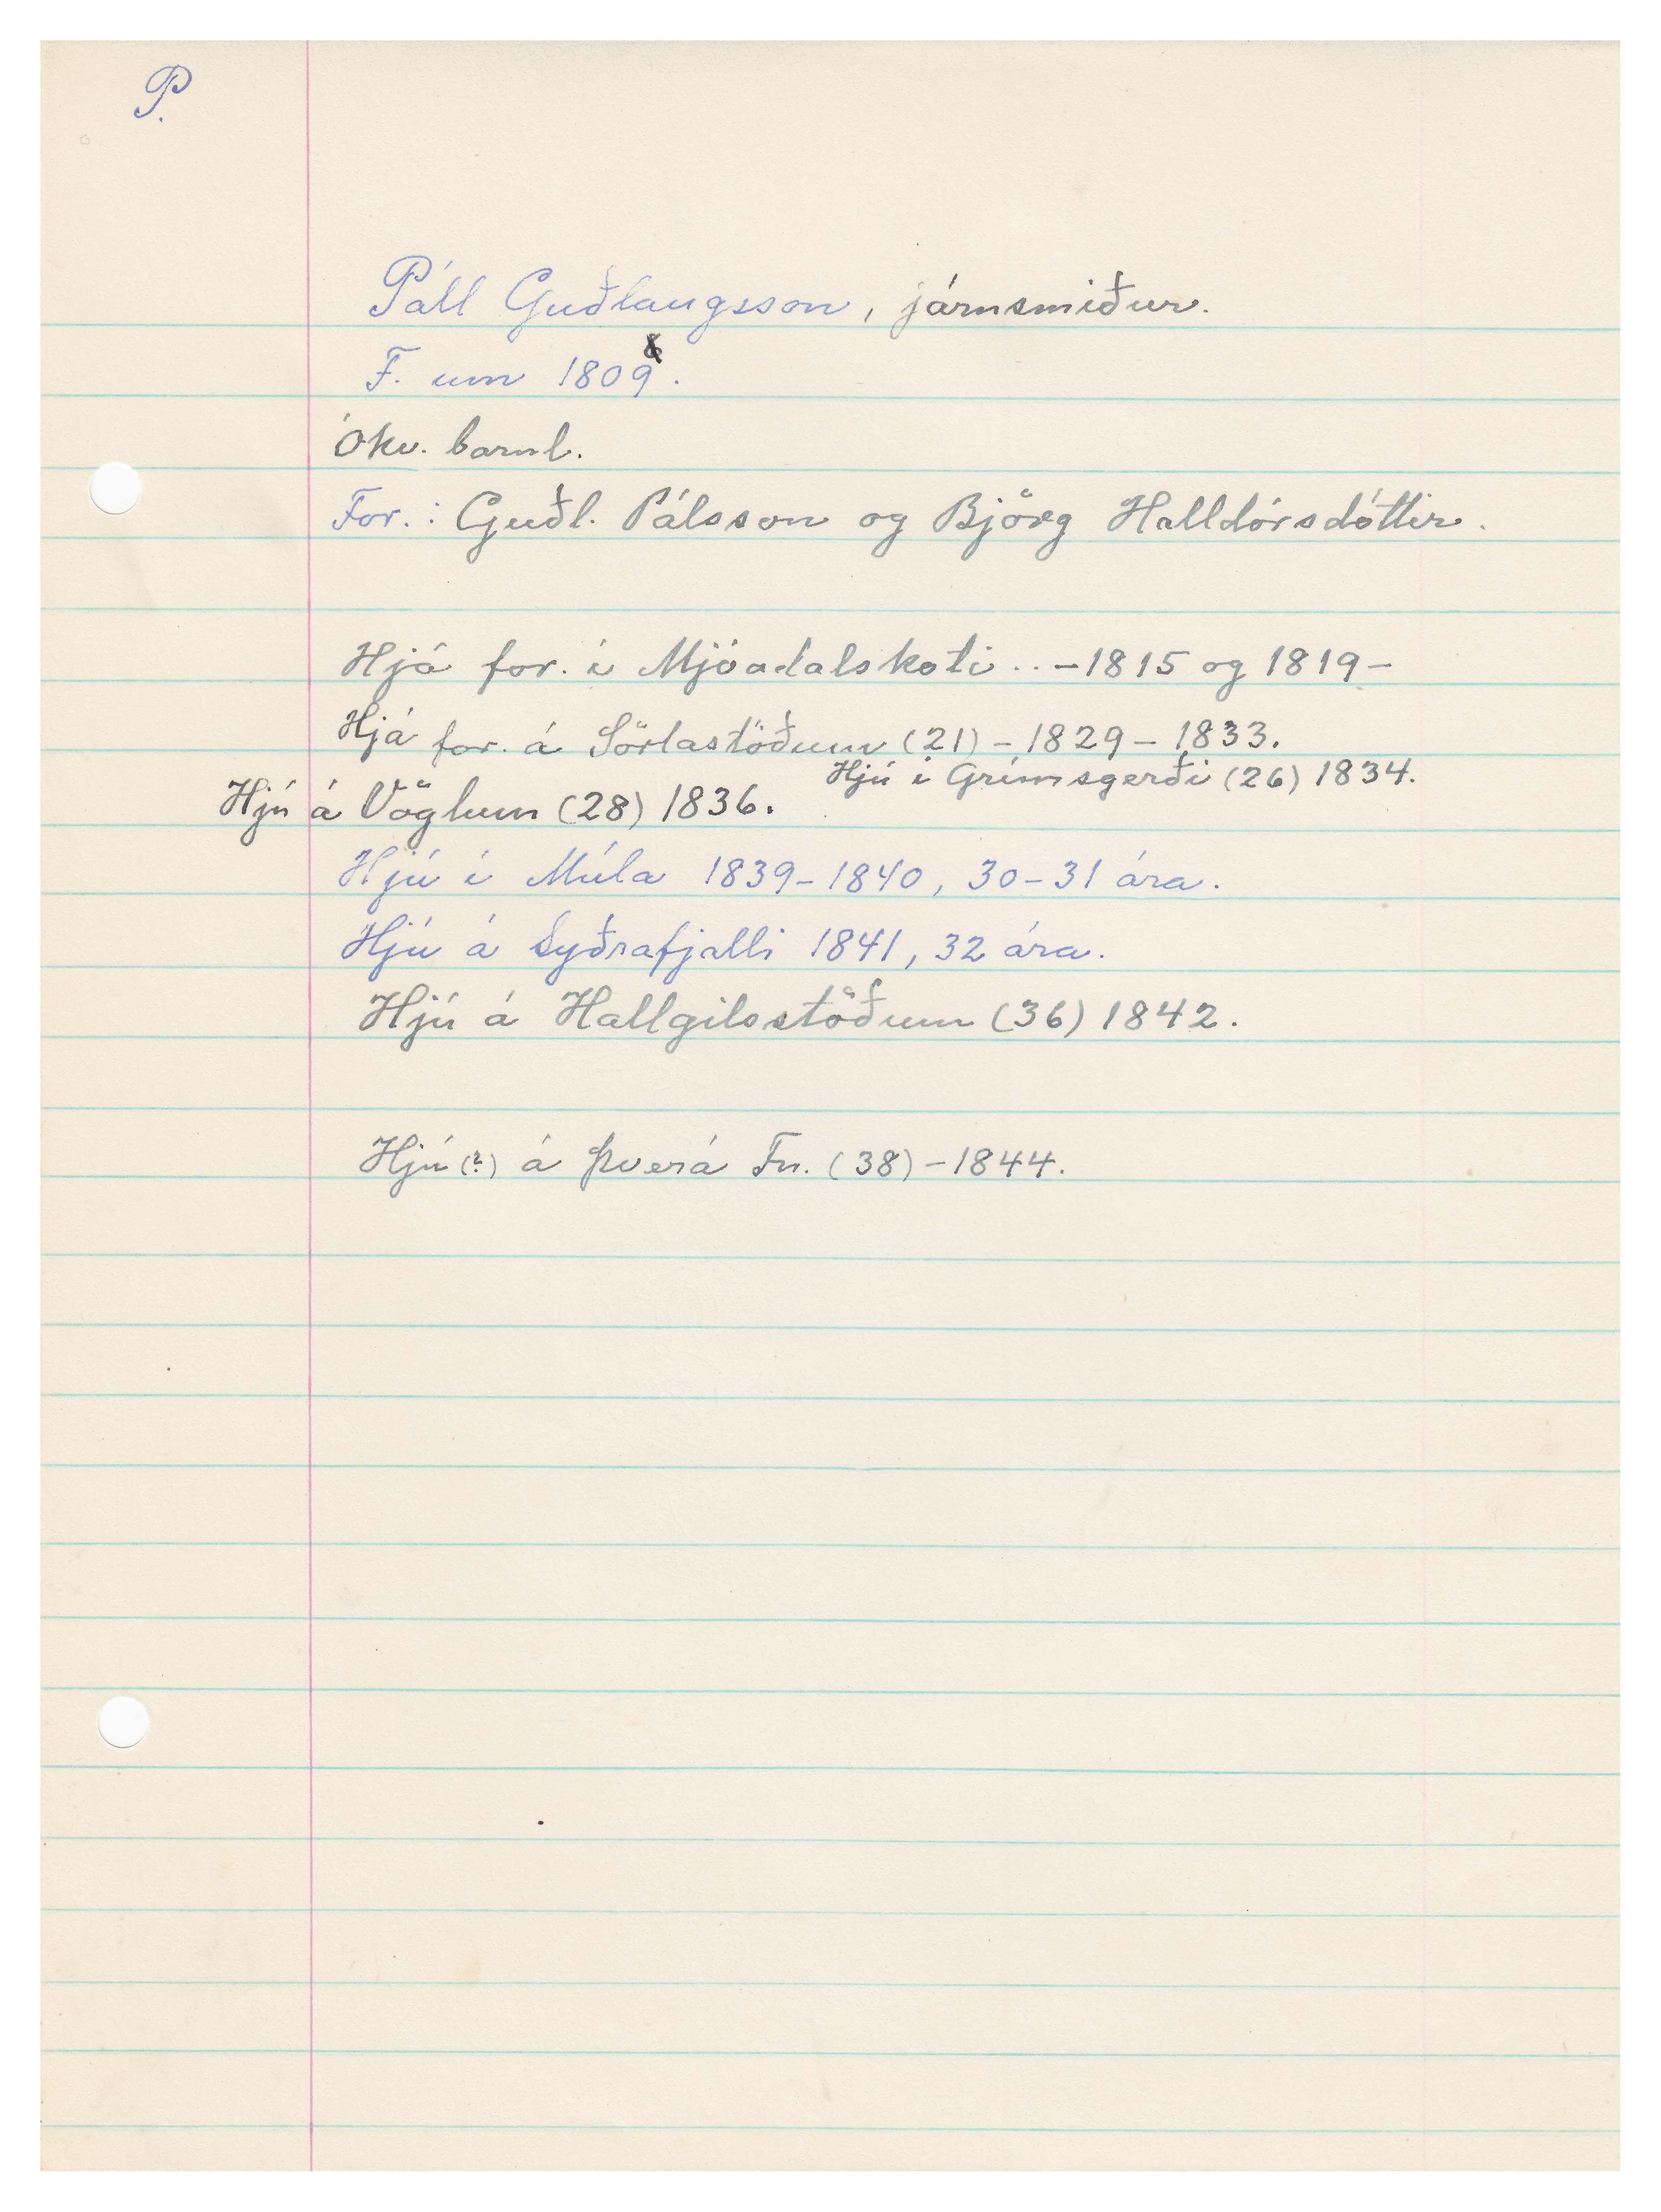 P.
Páll Guðlaugsson, járnsmiður.
F. um 1809.
Ókv. barnl.
For.: Guðl. Pálsson og Björg Halldórsdóttir.
Hjá for. í Mjóadalskoti .. -1815 og 1819-
Hjá for. á Sörlastöðum (21) - 1829 - 1833.
Hjú í Grímsgerði (26) 1834.
Hjú á Vöglum (28) 1836.
Hjú í Múla 1839-1840, 30-31 ára.
Hjú á Syðrafjalli 1841, 32 ára.
Hjú á Hallgilsstöðum (36) 1842.
Hjú (?) á Þverá Fn. (38) - 1844.